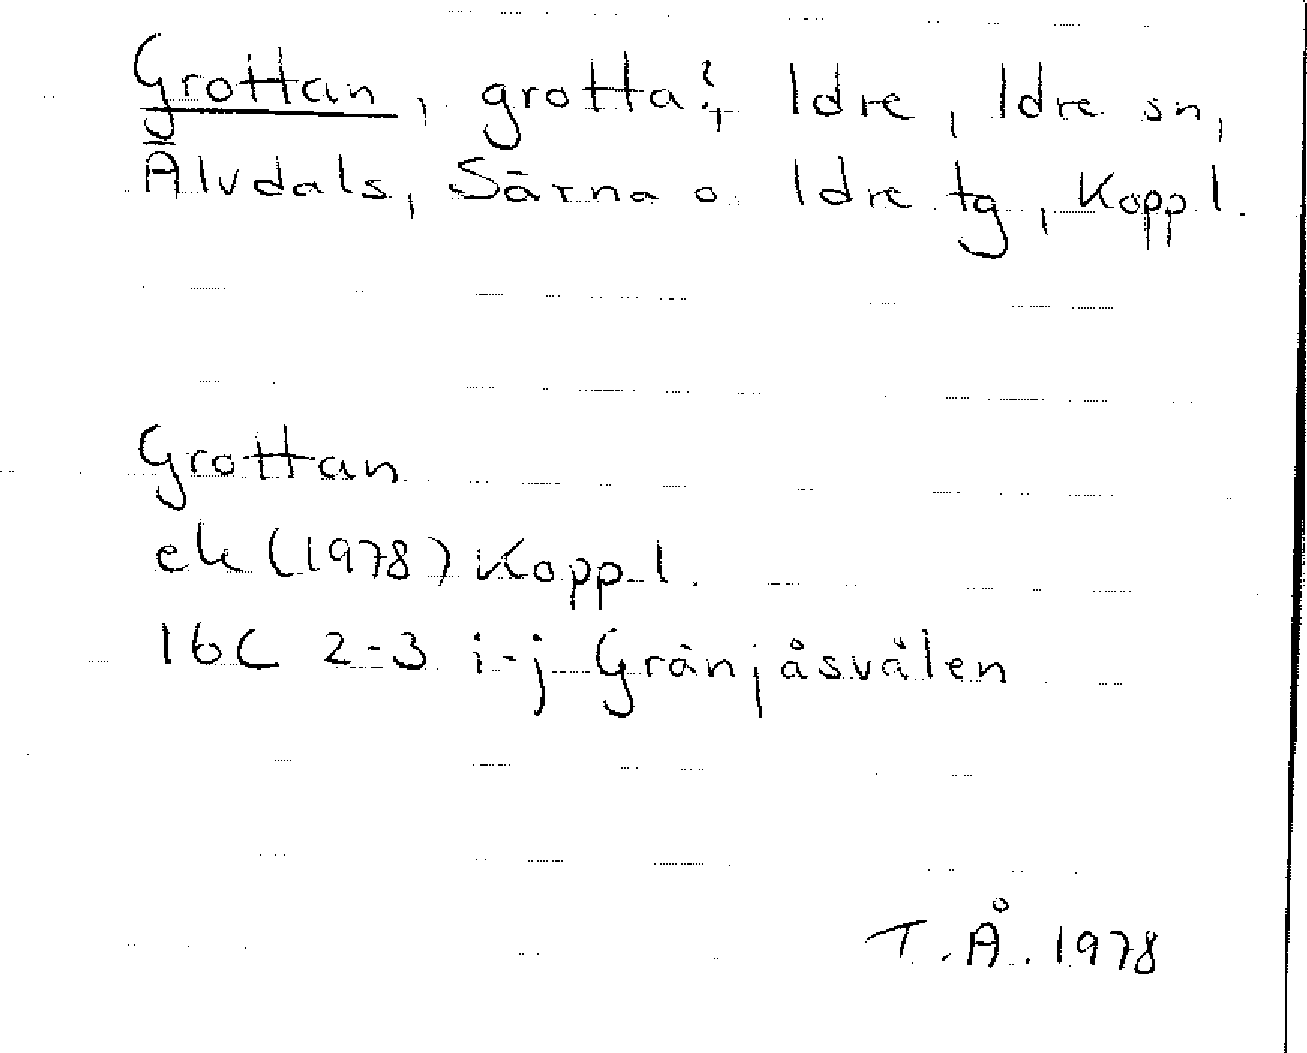 Grottan, grotta?, Idre, Idre sn,
Älvdals, Särna o Idre tg, Kopp l.
Grottan
ek (1978) Kopp l.
16C 2-3 i-j Grånjåsvålen
T.Å. 1978